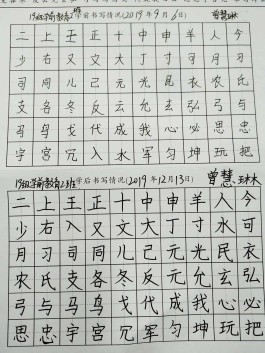 19级学前教育2班学前书写情况(2019年9月6日) 曾慧琳
二上王正十中申羊人今
少右又文大丁寸可月习
司同儿己元光昆衣农氏
支各冬务允玄去弘弓与
马鸟戈代成我心必思忠
宇宫冗入水军匀坤玩把
19级学前教育2班学后书写情况(2019年12月13日) 曾慧琳
二上王正十中申羊人今
少右入又文大丁寸水可
月习司同儿己元光民衣
农氏支各冬反元允玄弘
弓与马鸟戈代成我心必
思忠宇宫冗军匀坤玩把